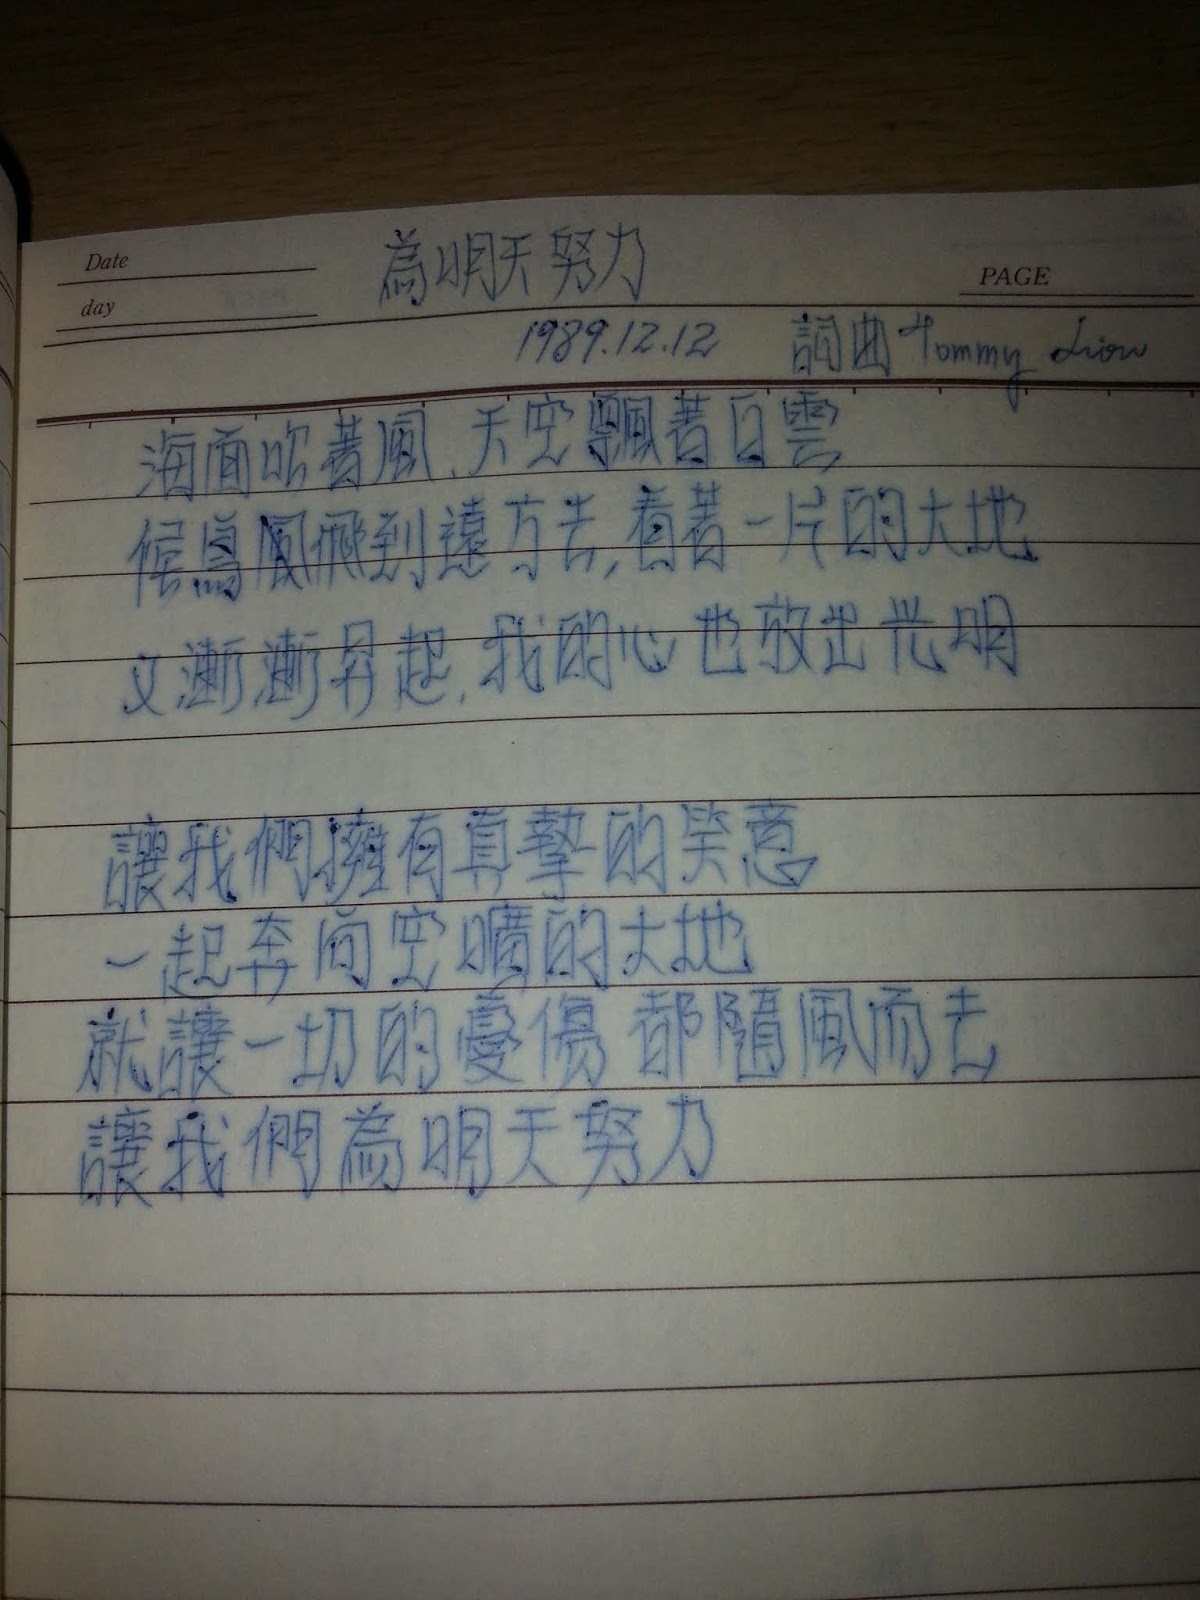 Date
為明天努力
PAGE
day
1989.12.12 詞曲 Tommy Liow
海面吹著風,天空飄著白雲
候鳥飛到遠方去,看著一片的大地
又漸漸昇起,我的心也放出光明
讓我們擁有真摯的笑意
一起奔向空曠的大地
就讓一切的憂傷都隨風而去
讓我們為明天努力